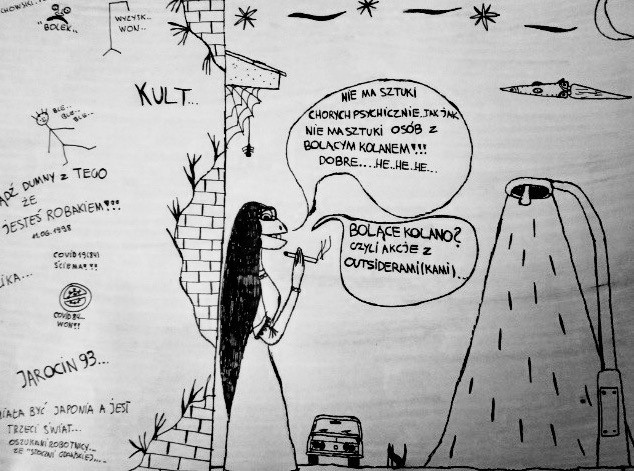 CHOWSKI...
"BOLEK"
WYZYSK...
WON...
KULT...
BLE...
BLE...
BLE...
BĄDŹ DUMNY Z TEGO
ŻE
JESTEŚ ROBAKIEM!!!
11.06.1998
COVID 19(84)
ŚCIEMA!!!
COVID 84...
WON!!!
JAROCIN 93...
MIAŁA BYĆ JAPONIA A JEST
TRZECI ŚWIAT...
OSZUKANI ROBOTNICY...
ZE "STOCZNI GDAŃSKIEJ"...
NIE MA SZTUKI
CHORYCH PSYCHICZNIE, TAK JAK
NIE MA SZTUKI OSÓB Z
BOLĄCYM KOLANEM!!!
DOBRE....HE..HE..HE...
BOLĄCE KOLANO?
CZYLI AKCJE Z
OUTSIDERAMI(KAMI)...